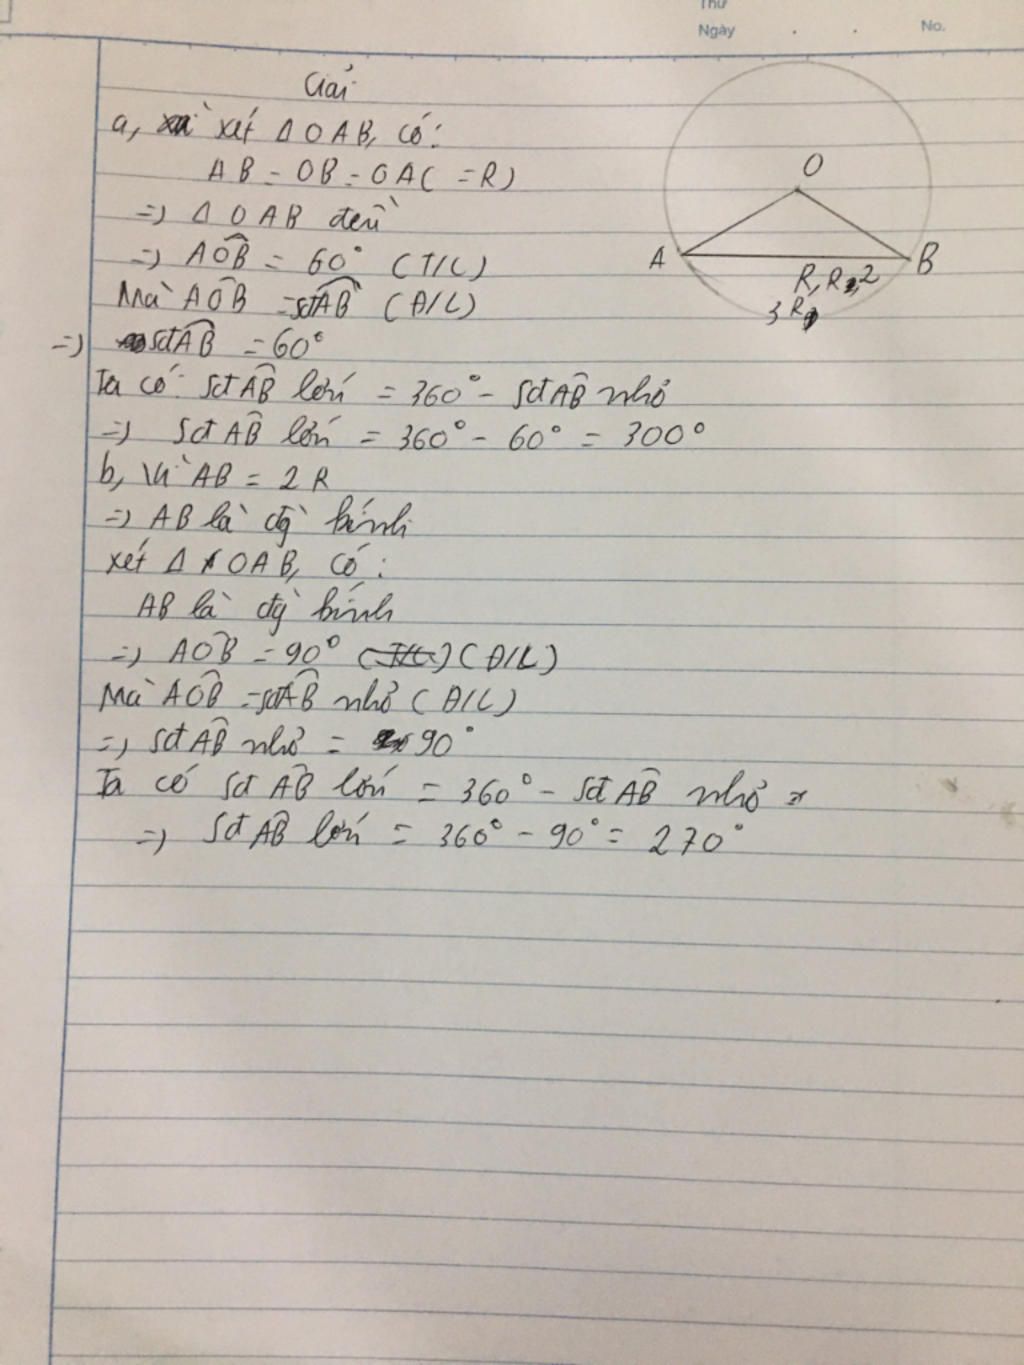 Thứ
Ngày . . No.
Giải
a, xét Δ OAB, có:
AB = OB = OA ( = R)
=> Δ OAB đều
=> AÔB = 60° (T/C)
Mà AÔB = sđAB (Đ/L)
=> sđAB = 60°
Ta có: sđAB lớn = 360° - sđAB nhỏ
=> sđAB lớn = 360° - 60° = 300°
b, Vì AB = 2R
=> AB là đg` kính
xét Δ OAB, có:
AB là đg` kính
=> AÔB = 90° (Đ/L)
Mà AÔB = sđAB nhỏ (Đ/L)
=> sđAB nhỏ = 90°
Ta có sđ AB lớn = 360° - sđ AB nhỏ
=> sđ AB lớn = 360° - 90° = 270°
O
A
B